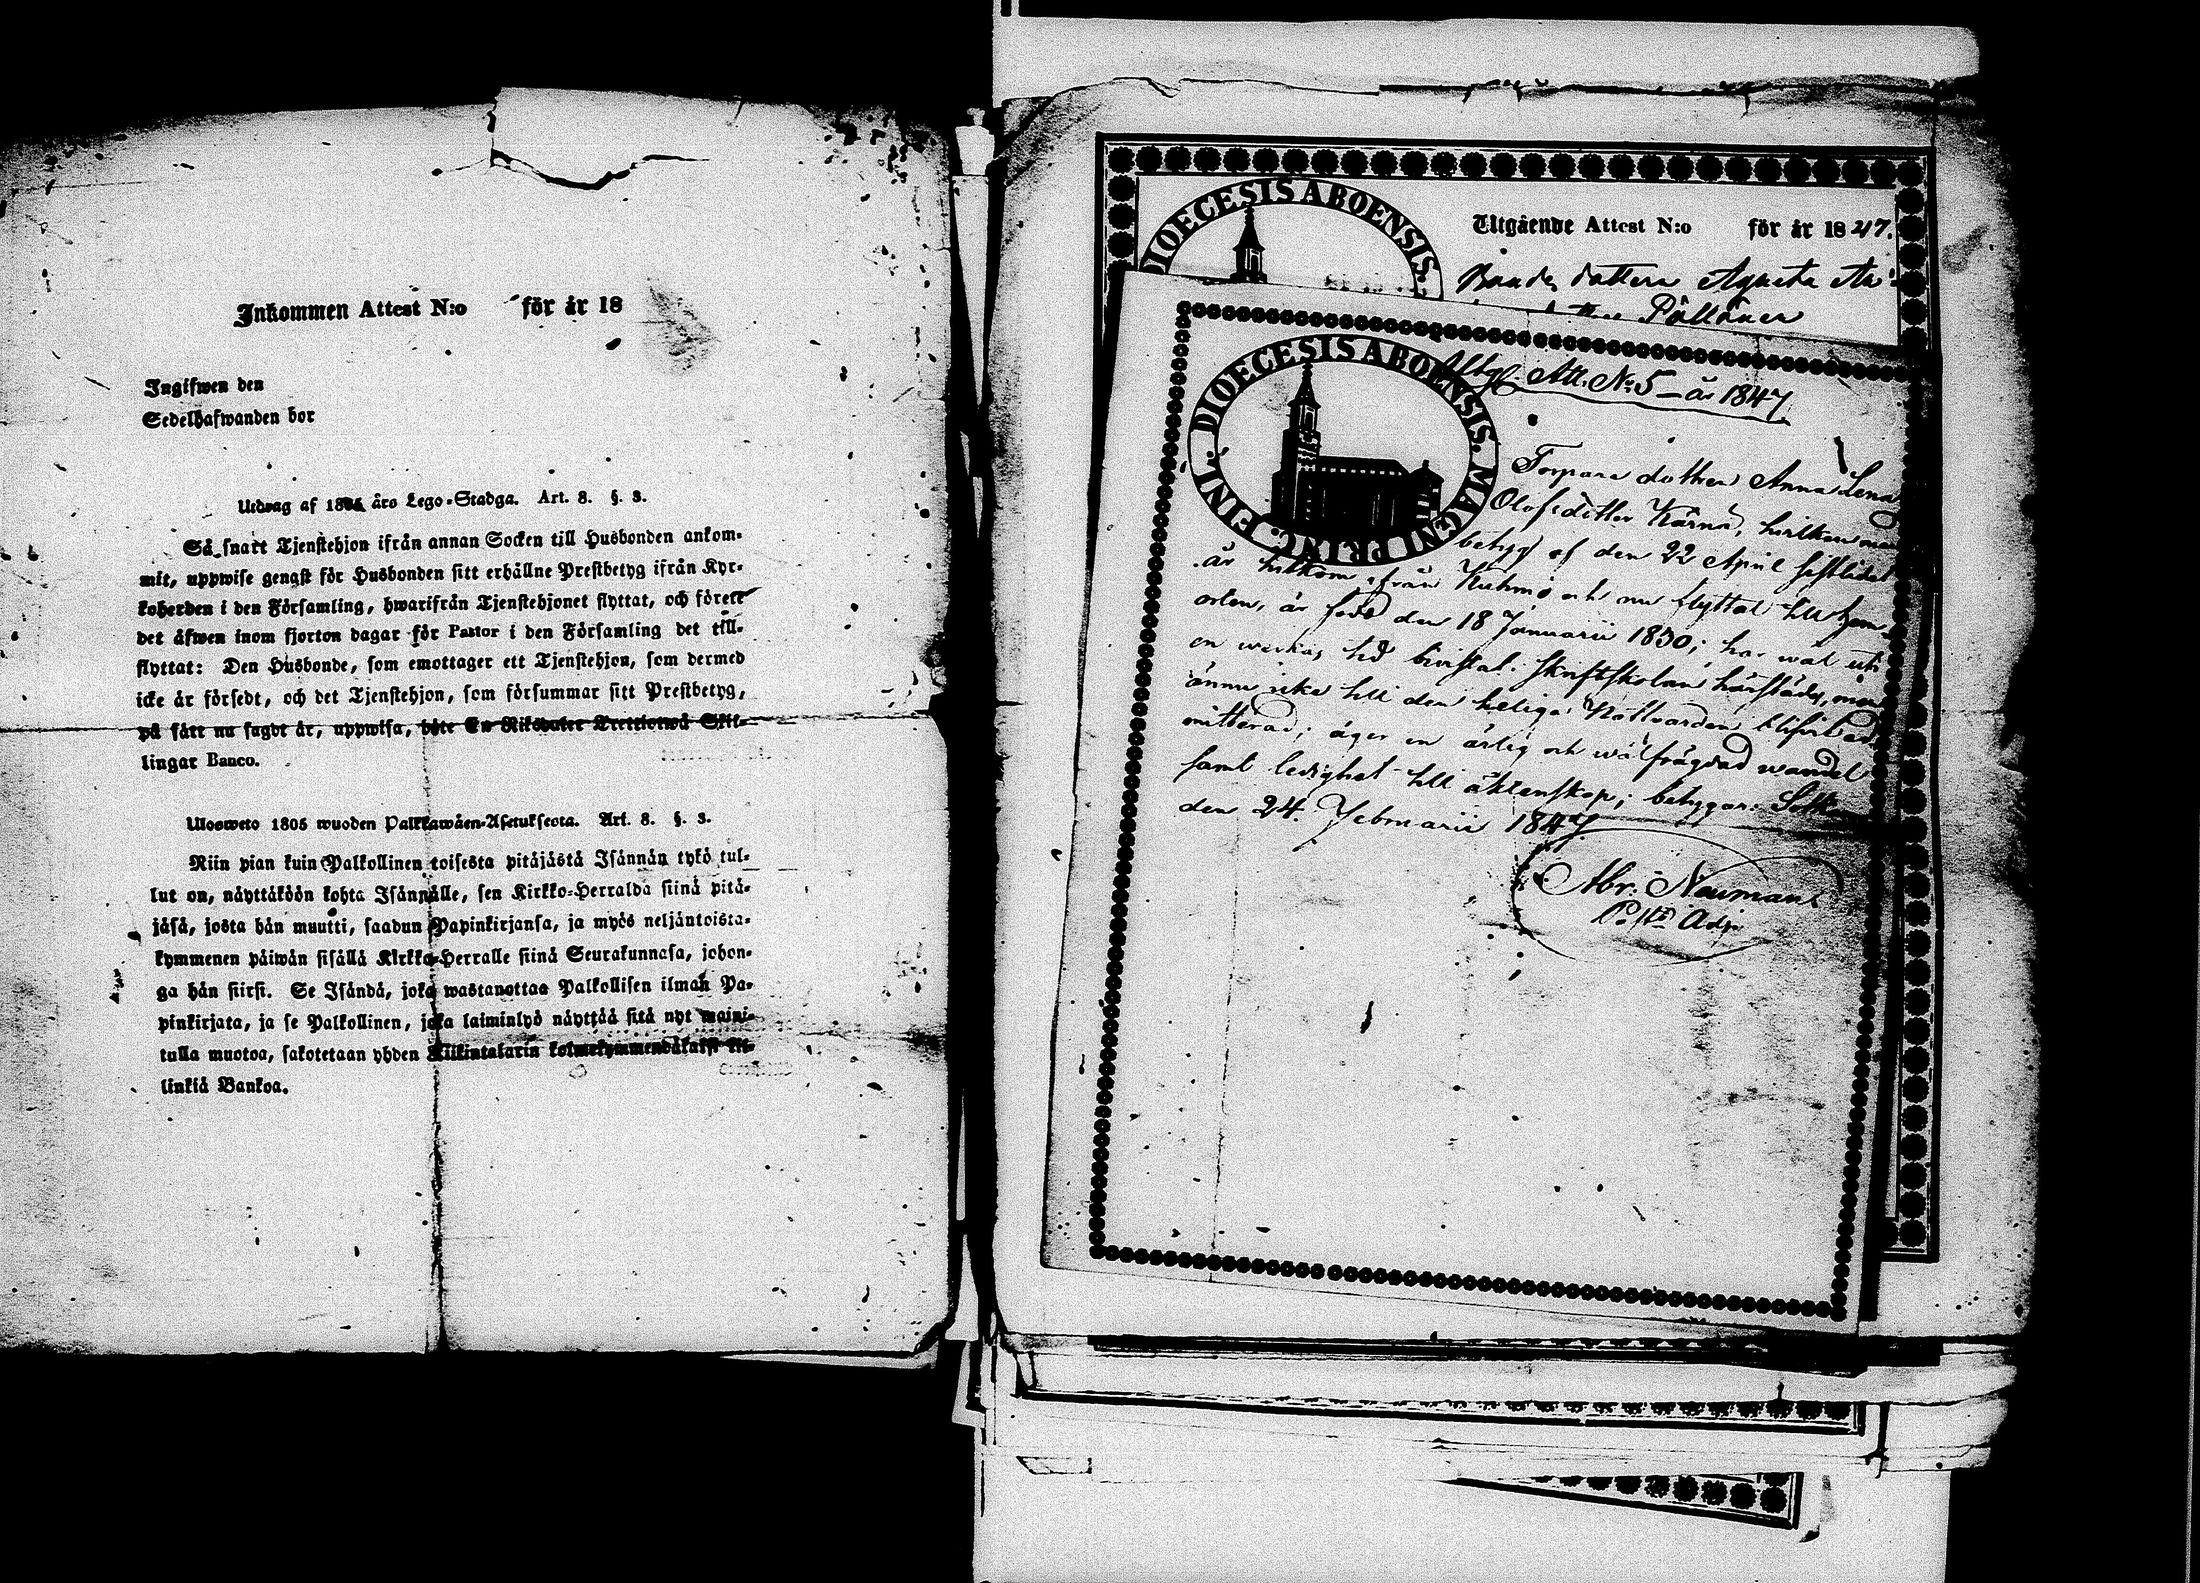 Inkommen Attest N:o för år 18
Ingifwen den
Sedelhafwanden bor
Utdrag af 1805 års Lego-Stadga. Art. 8. §. 3.
Så snart Tjenstehjon ifrån annan Socken till Husbonden ankom-
mit, uppwise genast för Husbonden sitt erhållne Prestbetyg ifrån Kyr-
koherden i den Församling, hwarifrån Tjenstehjonet flyttat, och förete
det äfwen inom fjorton dagar för Pastor i den Församling det till-
flyttat: Den Husbonde, som emottager ett Tjenstehjon, som dermed
icke är försedt, och det Tjenstehjon, som försummar sitt Prestbetyg,
på sätt nu sagdt är, uppwisa, böte En Riksdaler Trettiotwå Skil-
lingar Banco.
Ulosweto 1805 wuoden Palkkawäen-Asetuksesta. Art. 8. §. 3.
Niin pian kuin Palkollinen toisesta pitäjästä Isännän tykö tul-
lut on, näyttäköön kohta Isännälle, sen Kirkko-Herralda siinä pitä-
jäsä, josta hän muutti, saadun Papinkirjansa, ja myös neljäntoista-
kymmenen päiwän sisällä Kirkko-Herralle siinä Seurakunnasa, johon-
ga hän siirsi. Se Isändä, joka wastanottaa Palkollisen ilman Pa-
pinkirjata, ja se Palkollinen, joka laiminlyö näyttää sitä nyt maini-
tulla muotoa, sakotetaan yhden Riikintalarin kolmekymmendäkaksi kil-
linkiä Bankoa.
DIOECESIS ABOENSIS.
Utgående Attest N:o för år 1847.
Bonde dottern Agneta
Pöllänen
DIOECESIS ABOENSIS. MAGNI PRINC. FINL.
Utg. Att. No 5 – år 1847
Torpare dottren Anna Lena
Olofsdotter Kärnä, hvilken med
betyg af den 22 April sistlidet
år hitkom från Kuhmo och nu flyttat till hem-
orten, är född den 18 Januarii 1830; har wäl uti
en weckas tid bivistat skriftskolan härstädes, men
ännu icke till den heliga Nattvarden blifvit ad-
mitterad; äger en ärlig och wälfrägdad wandel
samt ledighet till äktenskap; betygar. Sotk
den 24. Februarii 1847
Abr. Neuman
Adj.